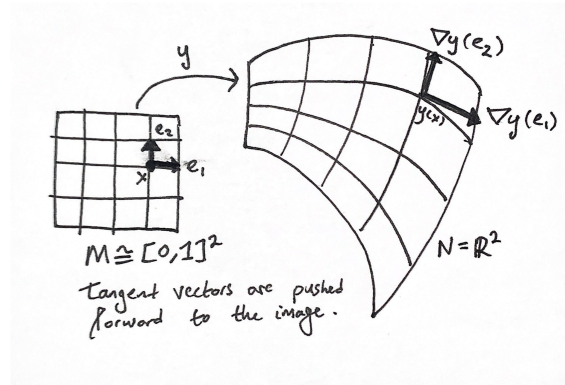 y
∇y(e₂)
y(x)
∇y(e₁)
e₂
x
e₁
M≅[0,1]²
N=ℝ²
Tangent vectors are pushed
forward to the image.